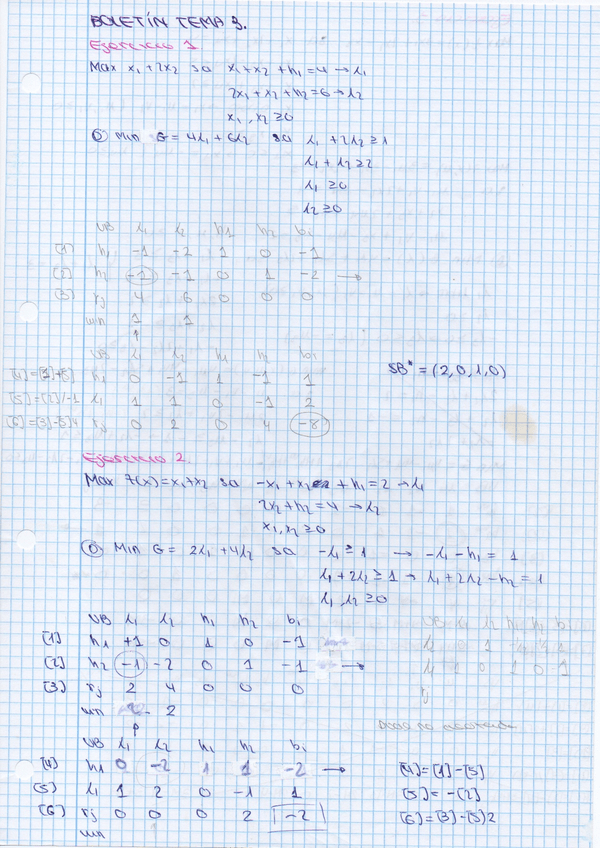 BOLETÍN TEMA 3.
Ejercicio 1.
Max x₁+2x₂ sa x₁+x₂+h₁=4→λ₁
2x₁+x₂+h₂=6→λ₂
x₁,x₂≥0
Min G=4λ₁+6λ₂ sa λ₁+2λ₂≥1
λ₁+λ₂≥2
λ₁≥0
λ₂≥0
VB λ₁ λ₂ h1 h₂ b₁
(1) h₁ -1 -2 1 0 -1
(2) h₂ -1 -1 0 1 -2 →
(3) rj 4 6 0 0 0
min 1 1
↑
VB λ₁ λ₂ h₁ h₂ b₁
[4]=[1]+[5] h₁ 0 -1 1 -1 1
SB* = (2,0,1,0)
[5]=[2]/-1 λ₁ 1 1 0 -1 2
[6]=[3]-[5]4 rj 0 2 0 4 -8
Ejercicio 2.
Max f(x)=x₁+x₂ sa -x₁+x₂ +h₁=2→λ₁
2x₂+h₂=4→λ₂
x₁,x₂≥0
Min G= 2λ₁+4λ₂ sa -λ₁≥1 → -λ₁-h₁= 1
λ₁+2λ₂≥1→λ₁+2λ₂-h₂=1
λ₁,λ₂≥0
VB λ₁ λ₂ h₁ h₂ b₁
(1) h₁ +1 0 1 0 -1
(2) h₂ -1 -2 0 1 -1 →
(3) rj 2 4 0 0 0
min 2 2
↑
VB λ₁ λ₂ h₁ h₂ b₁
(4) h₁ 0 -2 1 1 -2 →
[4]=[1]-[5]
(5) λ₁ 1 2 0 -1 1
[5]=-[2]
[6] rj 0 0 0 2 -2
[6]=[3]-[5]2
min